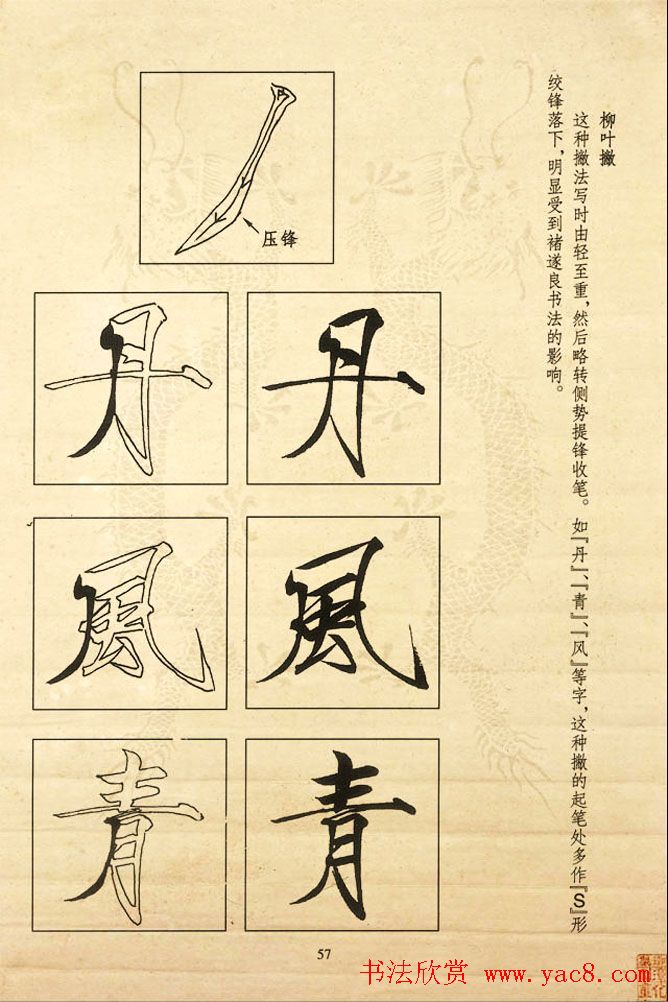 柳叶撇
这种撇法写时由轻至重，然后略转侧势提锋收笔。如『丹』、『青』、『风』等字，这种撇的起笔处多作『S』形
绞锋落下，明显受到褚遂良书法的影响。
压锋
丹
丹
風
風
青
青
57
书法欣赏 www.yac8.com